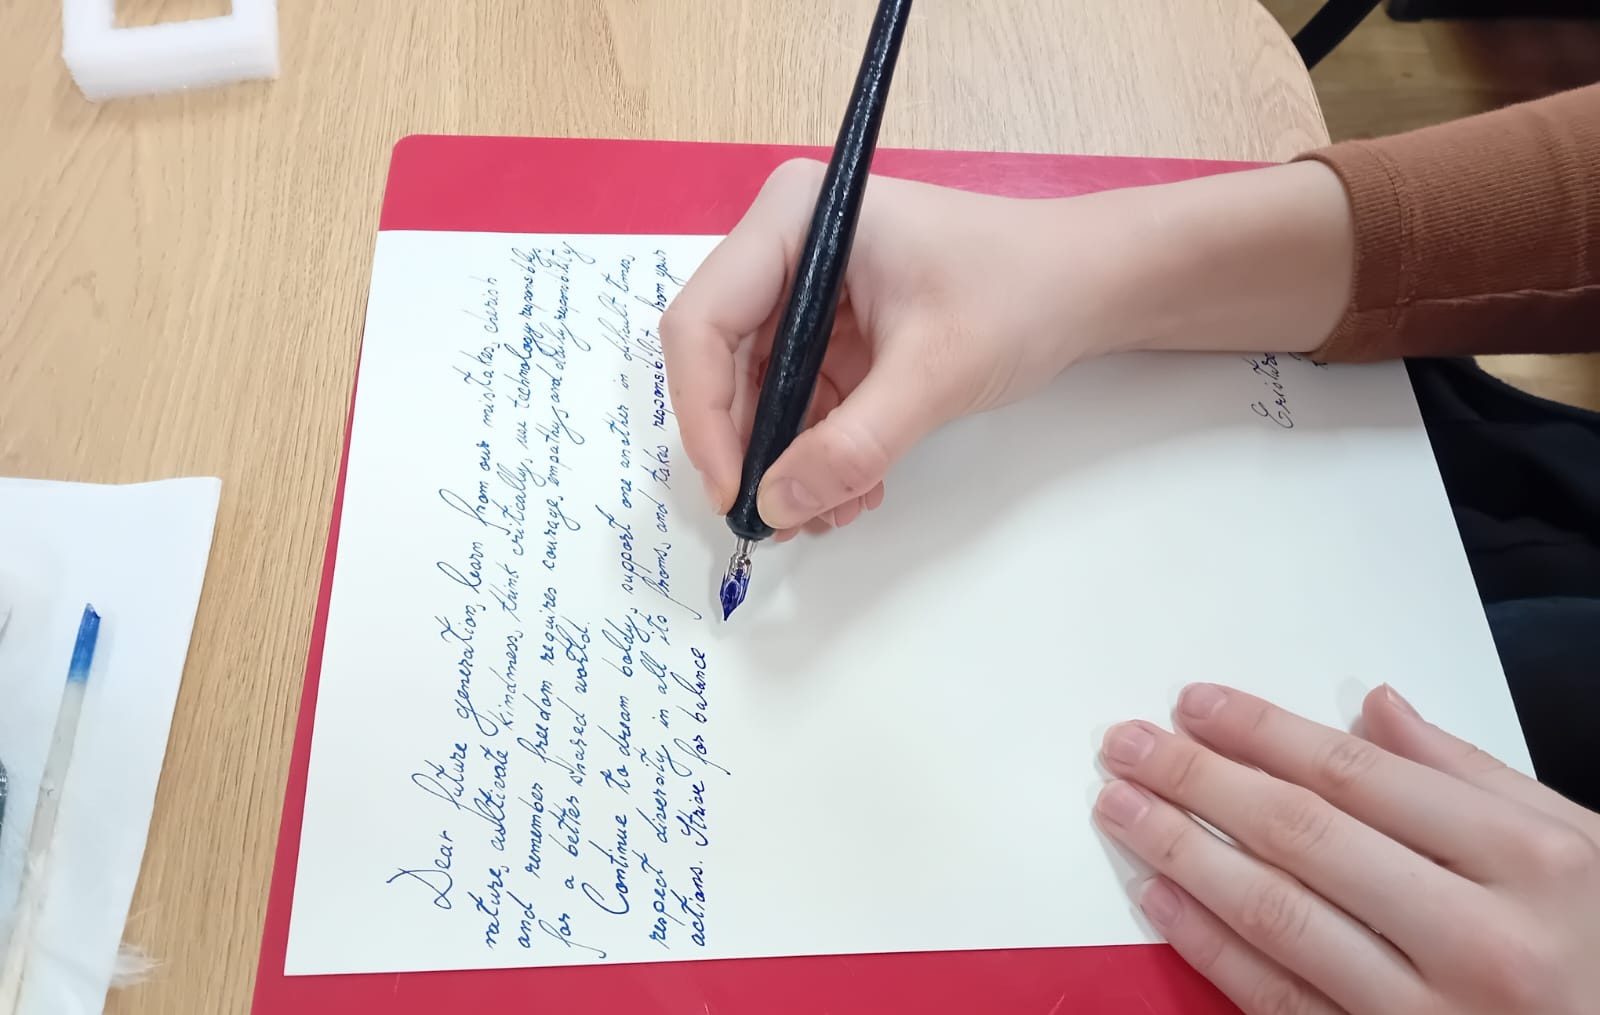 Dear future generation, learn from our mistakes, cherish
nature, cultivate kindness, think critically, use technology responsibly
and remember freedom requires courage, empathy and daily responsibility
for a better shared world.
Continue to dream boldy, support one another in difficult times,
respect diversity in all its froms, and takes responsibility from your
actions. Strive for balance